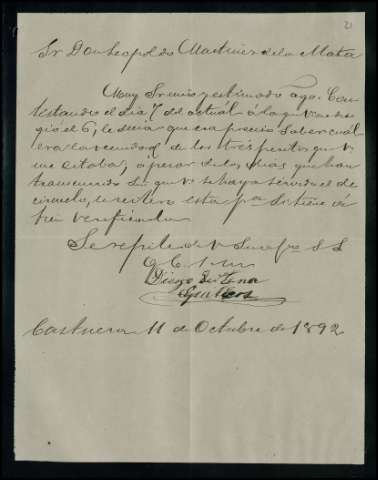 21
Sr Don Leopoldo Martinez de la Mata
Muy Sr mio y estimado ago. Con
testando el dia 7 del actual á la que V me diri
gió el 6, le decia que era preciso saber cual
era la vecindad de los tres puntos que V
me citaba, y á pesar de los dias que han
transcurrido sin que V se haya servido el de
cirmelo, le reitero esta pa. si tiene á
bien verificarlo
Se repite de V S. S.
Q B S M
Diego de Tena
Castuera 11 de Octubre de 1892